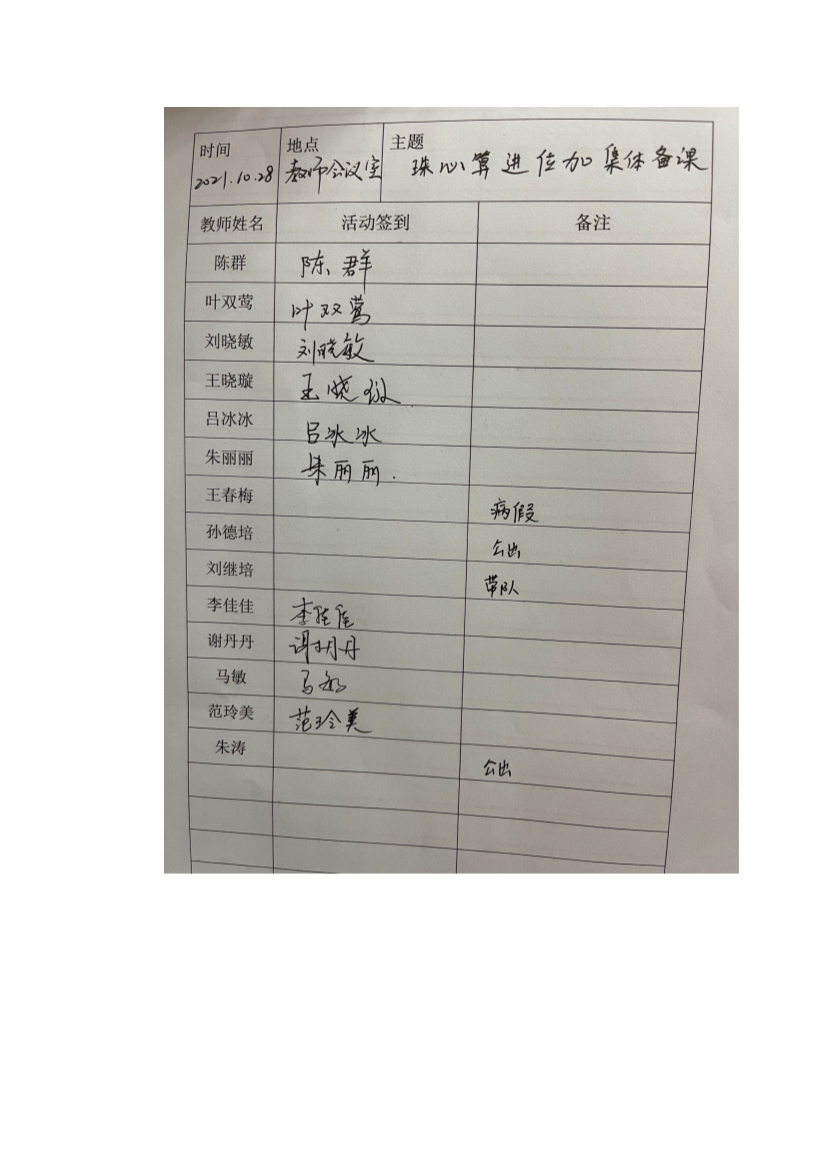 时间 地点 主题
2021.10.28 教师会议室 珠心算进位加集体备课
教师姓名 活动签到 备注
陈群 陈群
叶双莺 叶双莺
刘晓敏 刘晓敏
王晓璇 王晓璇
吕冰冰 吕冰冰
朱丽丽 朱丽丽.
王春梅 病假
孙德培 公出
刘继培 带队
李佳佳 李佳佳
谢丹丹 谢丹丹
马敏 马敏
范玲美 范玲美
朱涛 公出